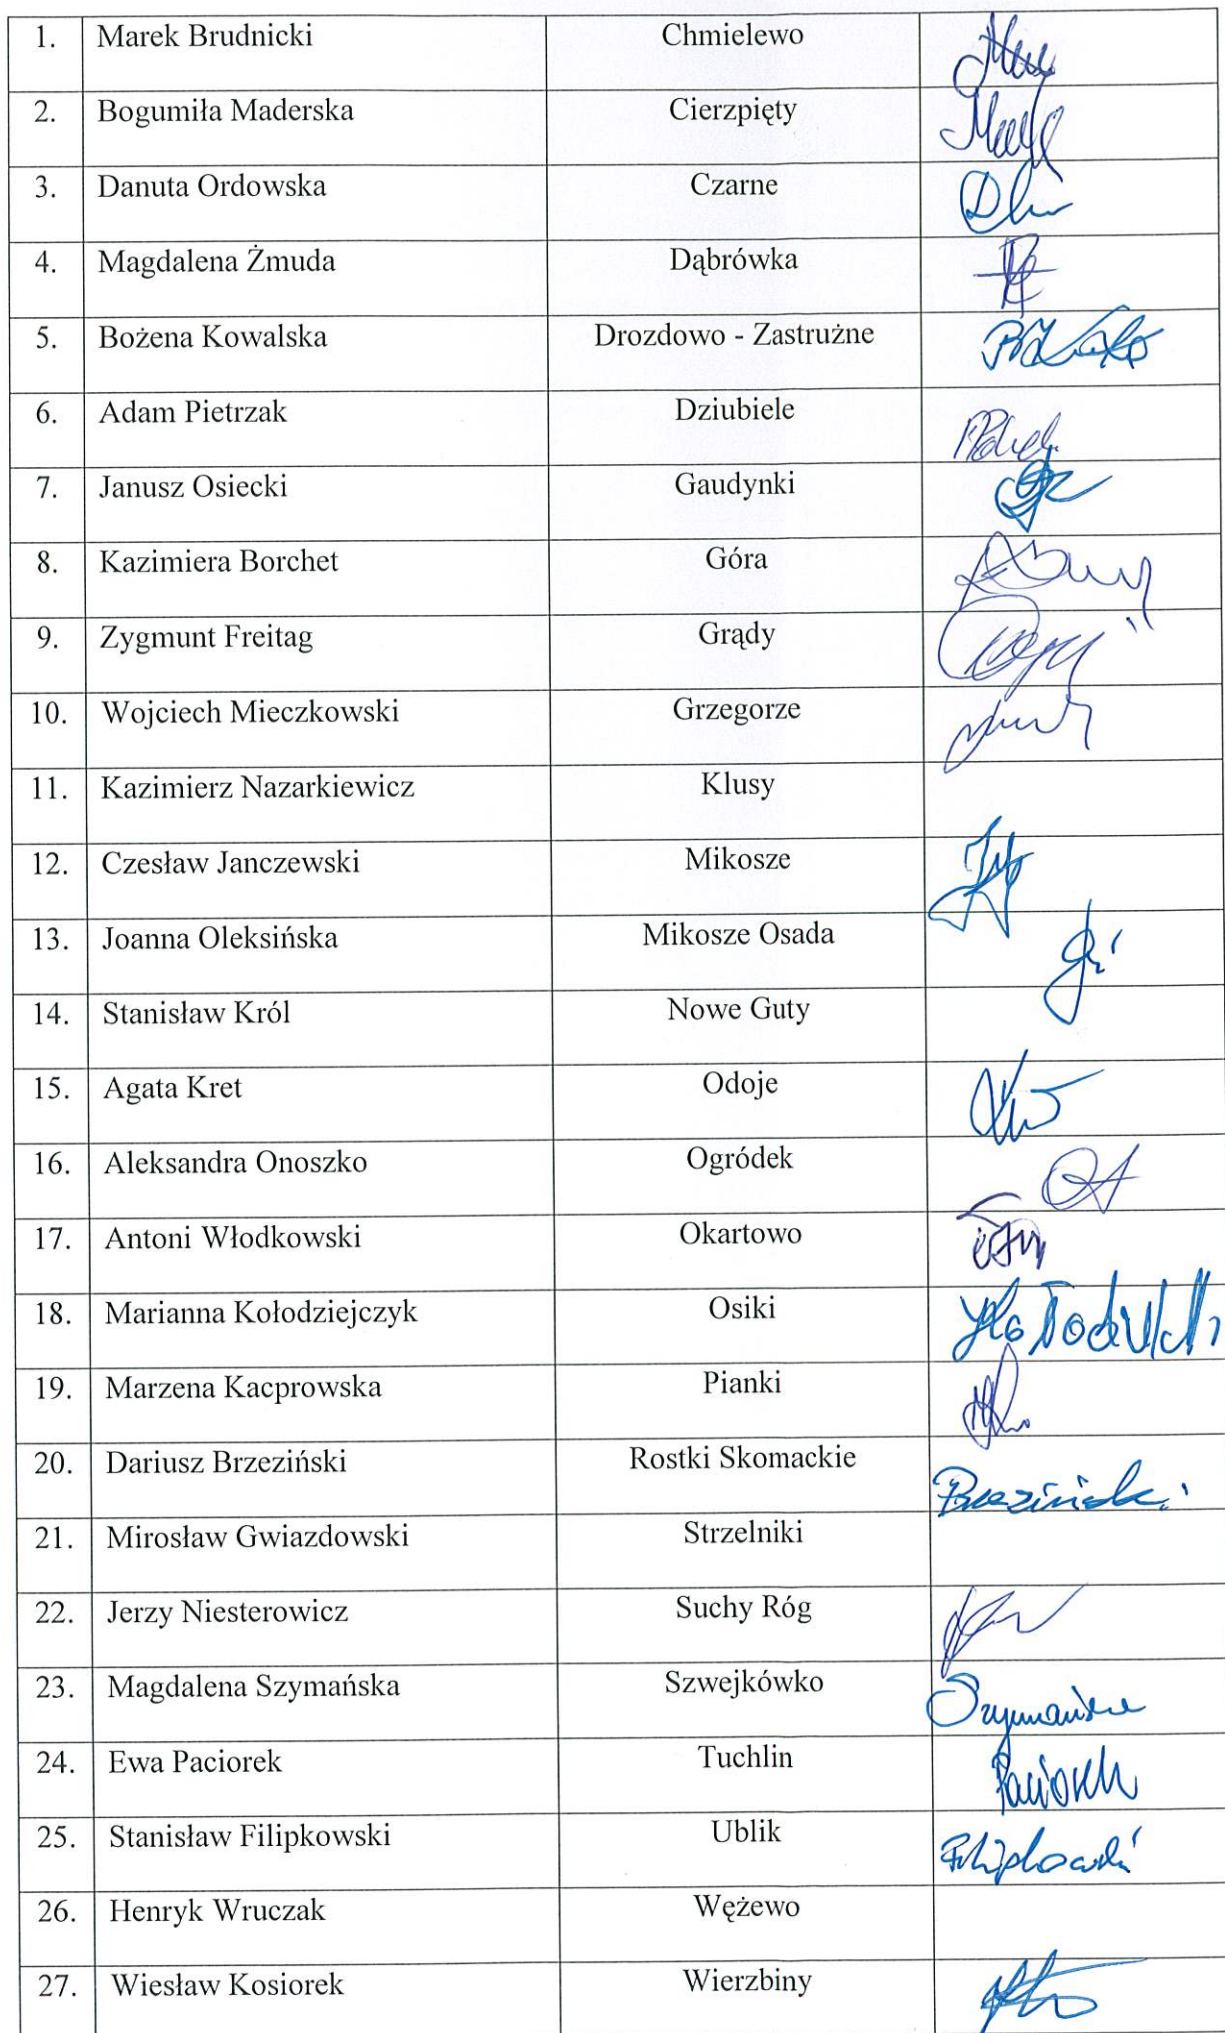 1. Marek Brudnicki Chmielewo
2. Bogumiła Maderska Cierzpięty
3. Danuta Ordowska Czarne
4. Magdalena Żmuda Dąbrówka
5. Bożena Kowalska Drozdowo - Zastrużne
6. Adam Pietrzak Dziubiele
7. Janusz Osiecki Gaudynki
8. Kazimiera Borchet Góra
9. Zygmunt Freitag Grądy
10. Wojciech Mieczkowski Grzegorze
11. Kazimierz Nazarkiewicz Klusy
12. Czesław Janczewski Mikosze
13. Joanna Oleksińska Mikosze Osada
14. Stanisław Król Nowe Guty
15. Agata Kret Odoje
16. Aleksandra Onoszko Ogródek
17. Antoni Włodkowski Okartowo
18. Marianna Kołodziejczyk Osiki
19. Marzena Kacprowska Pianki
20. Dariusz Brzeziński Rostki Skomackie
21. Mirosław Gwiazdowski Strzelniki
22. Jerzy Niesterowicz Suchy Róg
23. Magdalena Szymańska Szwejkówko
24. Ewa Paciorek Tuchlin Paciorek
25. Stanisław Filipkowski Ublik
26. Henryk Wruczak Wężewo
27. Wiesław Kosiorek Wierzbiny